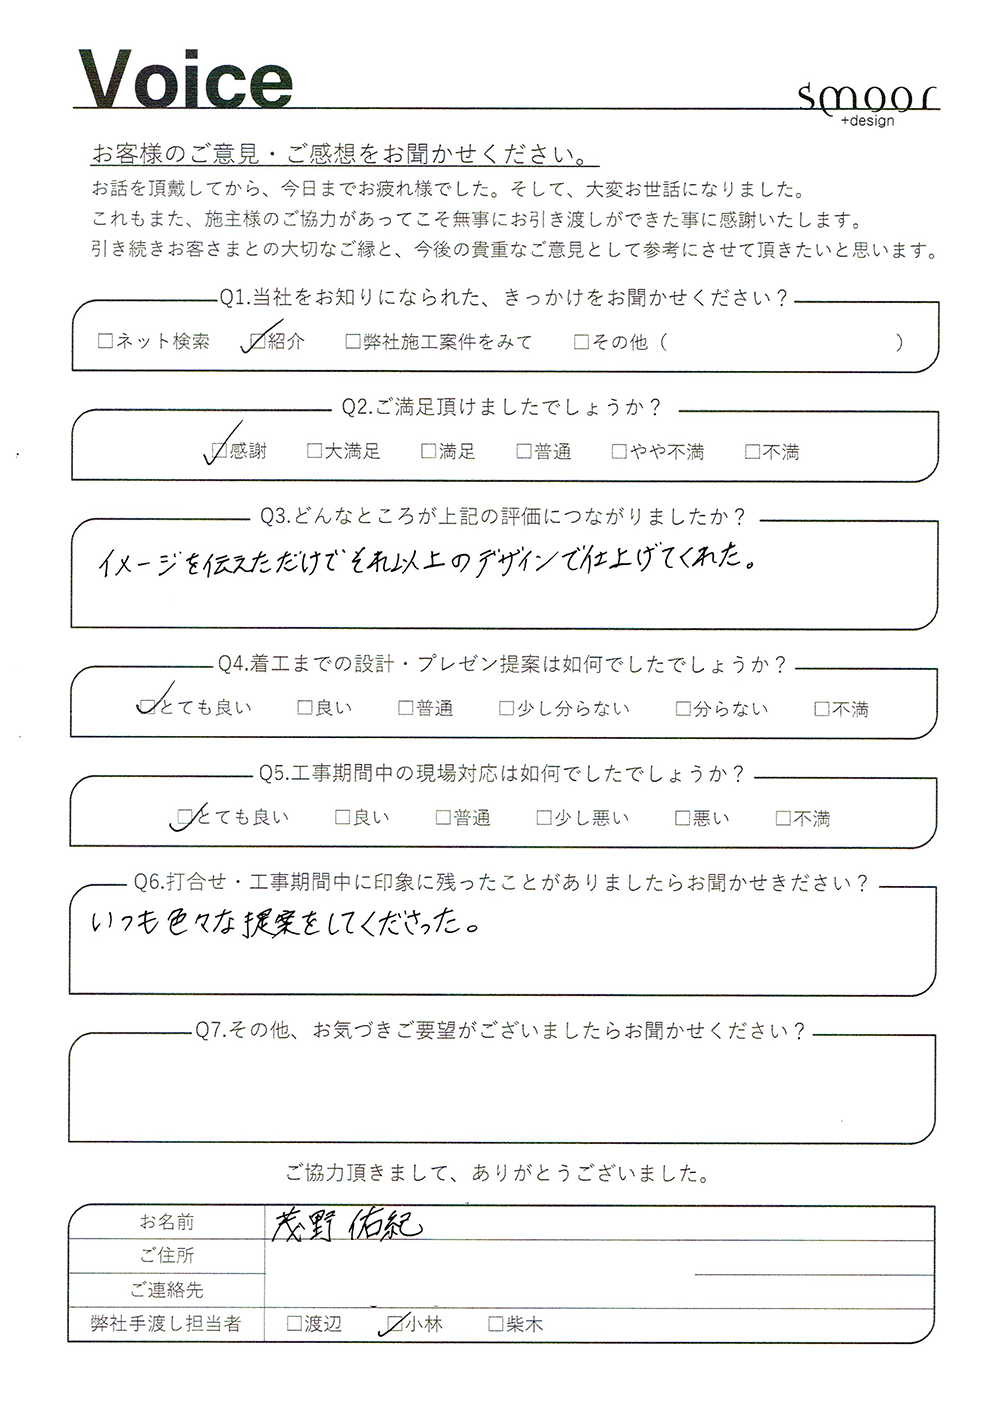 Voice
smoor
+design
お客様のご意見・ご感想をお聞かせください。
お話を頂戴してから、今日までお疲れ様でした。そして、大変お世話になりました。
これもまた、施主様のご協力があってこそ無事にお引き渡しができた事に感謝いたします。
引き続きお客さまとの大切なご縁と、今後の貴重なご意見として参考にさせて頂きたいと思います。
Q1.当社をお知りになられた、きっかけをお聞かせください？
□ネット検索 ☑紹介 □弊社施工案件をみて □その他（ ）
Q2.ご満足頂けましたでしょうか？
☑感謝 □大満足 □満足 □普通 □やや不満 □不満
Q3.どんなところが上記の評価につながりましたか？
イメージを伝えただけでそれ以上のデザインで仕上げてくれた。
Q4.着工までの設計・プレゼン提案は如何でしたでしょうか？
☑とても良い □良い □普通 □少し分らない □分らない □不満
Q5.工事期間中の現場対応は如何でしたでしょうか？
☑とても良い □良い □普通 □少し悪い □悪い □不満
Q6.打合せ・工事期間中に印象に残ったことがありましたらお聞かせきださい？
いつも色々な提案をしてくださった。
Q7.その他、お気づきご要望がございましたらお聞かせください？
ご協力頂きまして、ありがとうございました。
お名前 茂野 佑紀
ご住所
ご連絡先
弊社手渡し担当者 □渡辺 ☑小林 □柴木